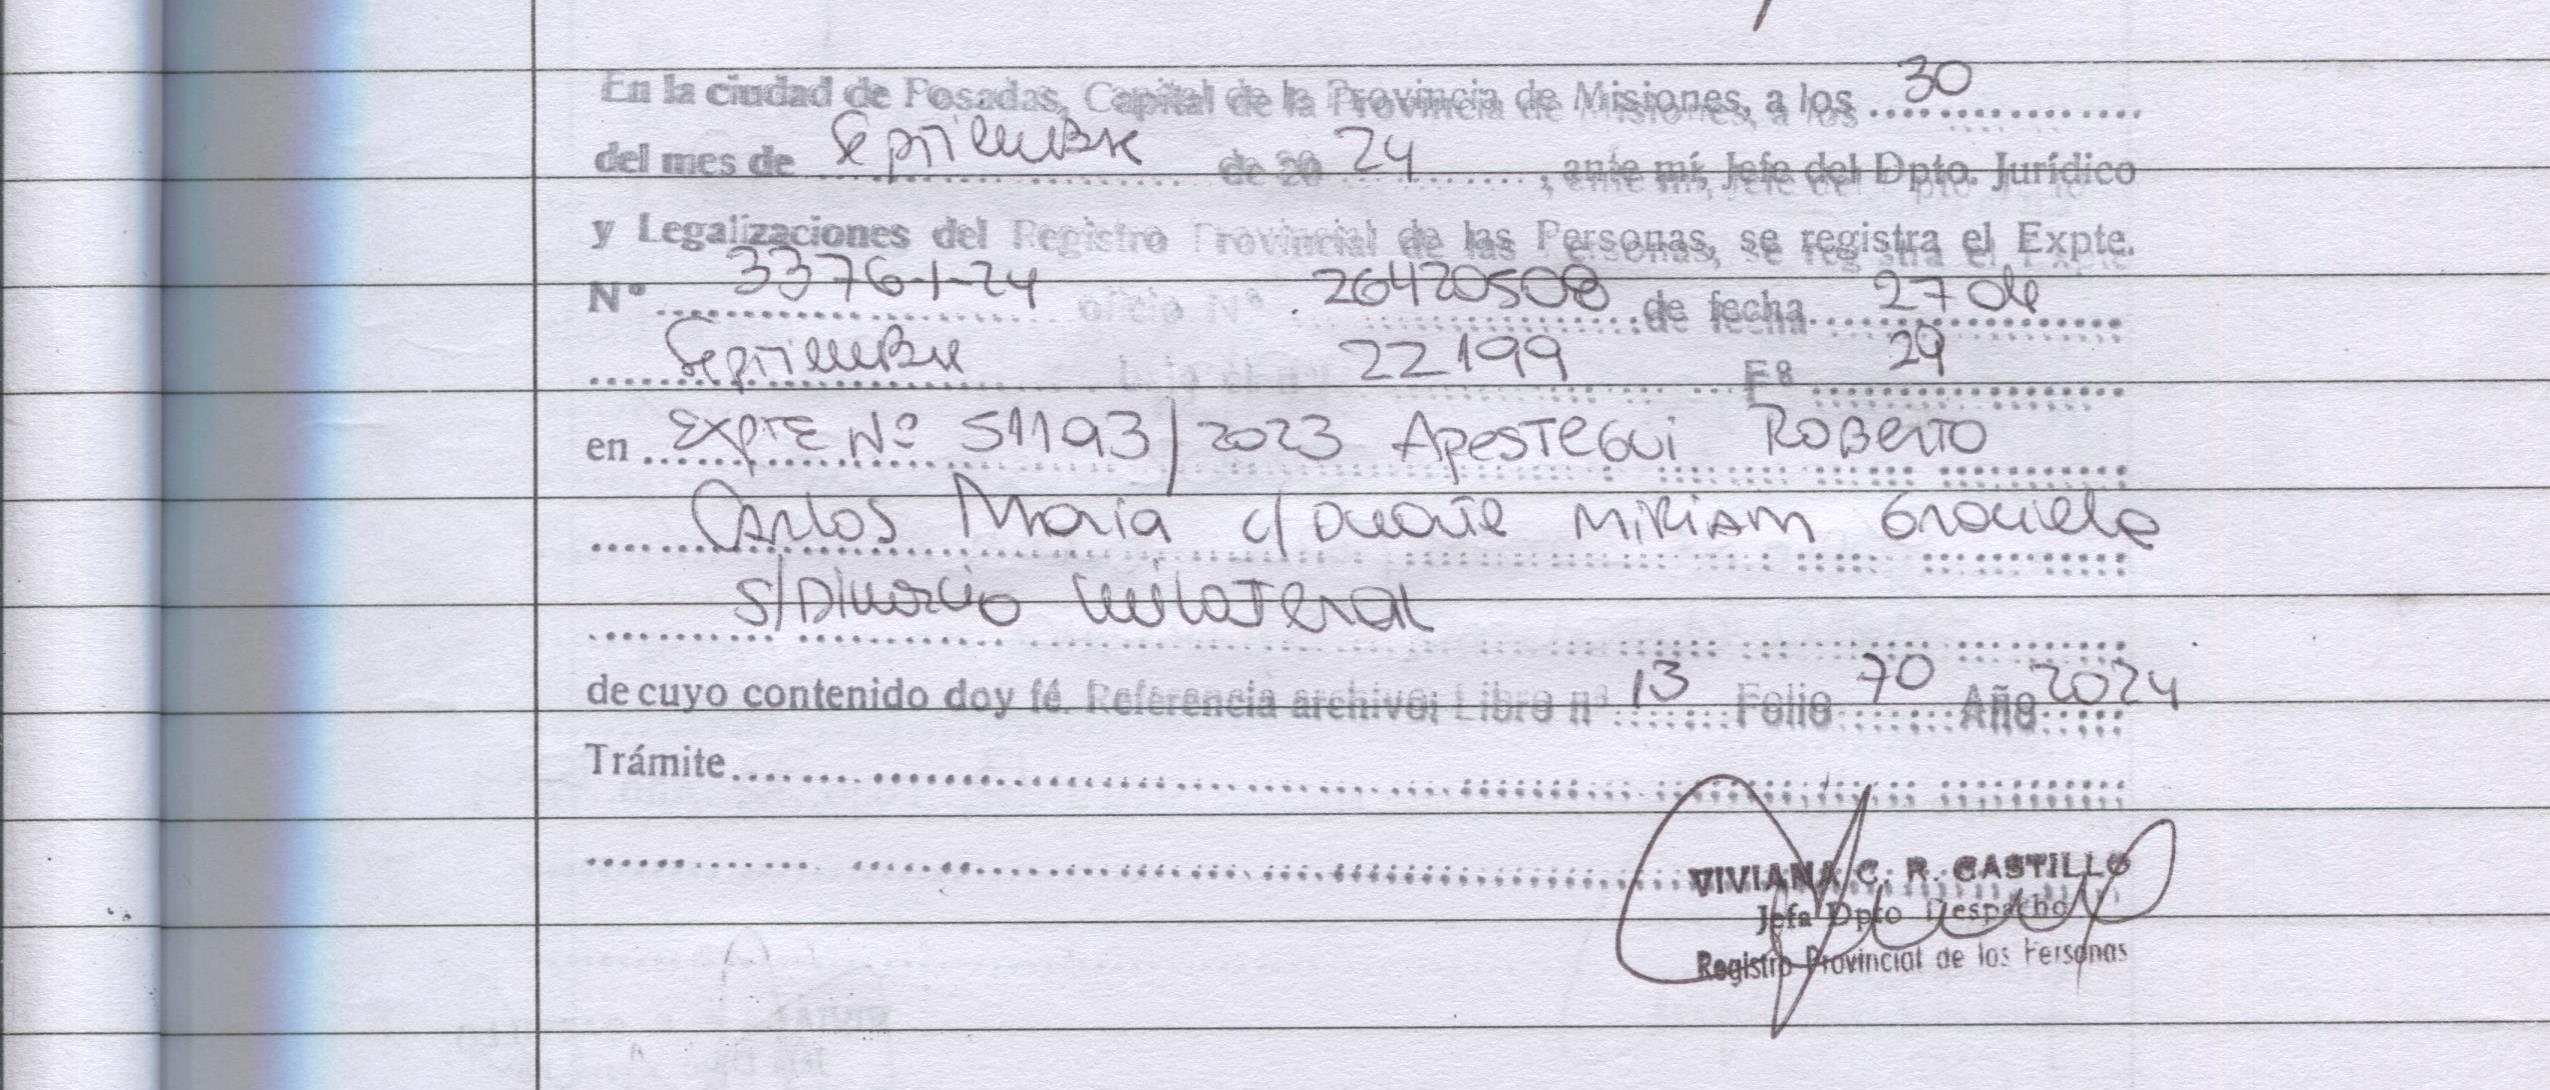 En la ciudad de Posadas, Capital de la Provincia de Misiones, a los 30
del mes de Septiembre de 20 24, ante mí, Jefe del Dpto. Jurídico
y Legalizaciones del Registro Provincial de las Personas, se registra el Expte.
Nº 3376-1-24 oficio Nº 26420508 de fecha 27 de
Septiembre 22199 Fº 29
en Expte Nº 51193/2023 Apestegui Roberto
Carlos Maria c/ Duarte Miriam Graciela
s/Divorcio Unilateral
de cuyo contenido doy fé. Referencia archivo: Libro nº 13 Folio 70 Año 2024
Trámite
VIVIANA C. R. CASTILLO
Jefa Dpto Despacho
Registro Provincial de las Personas